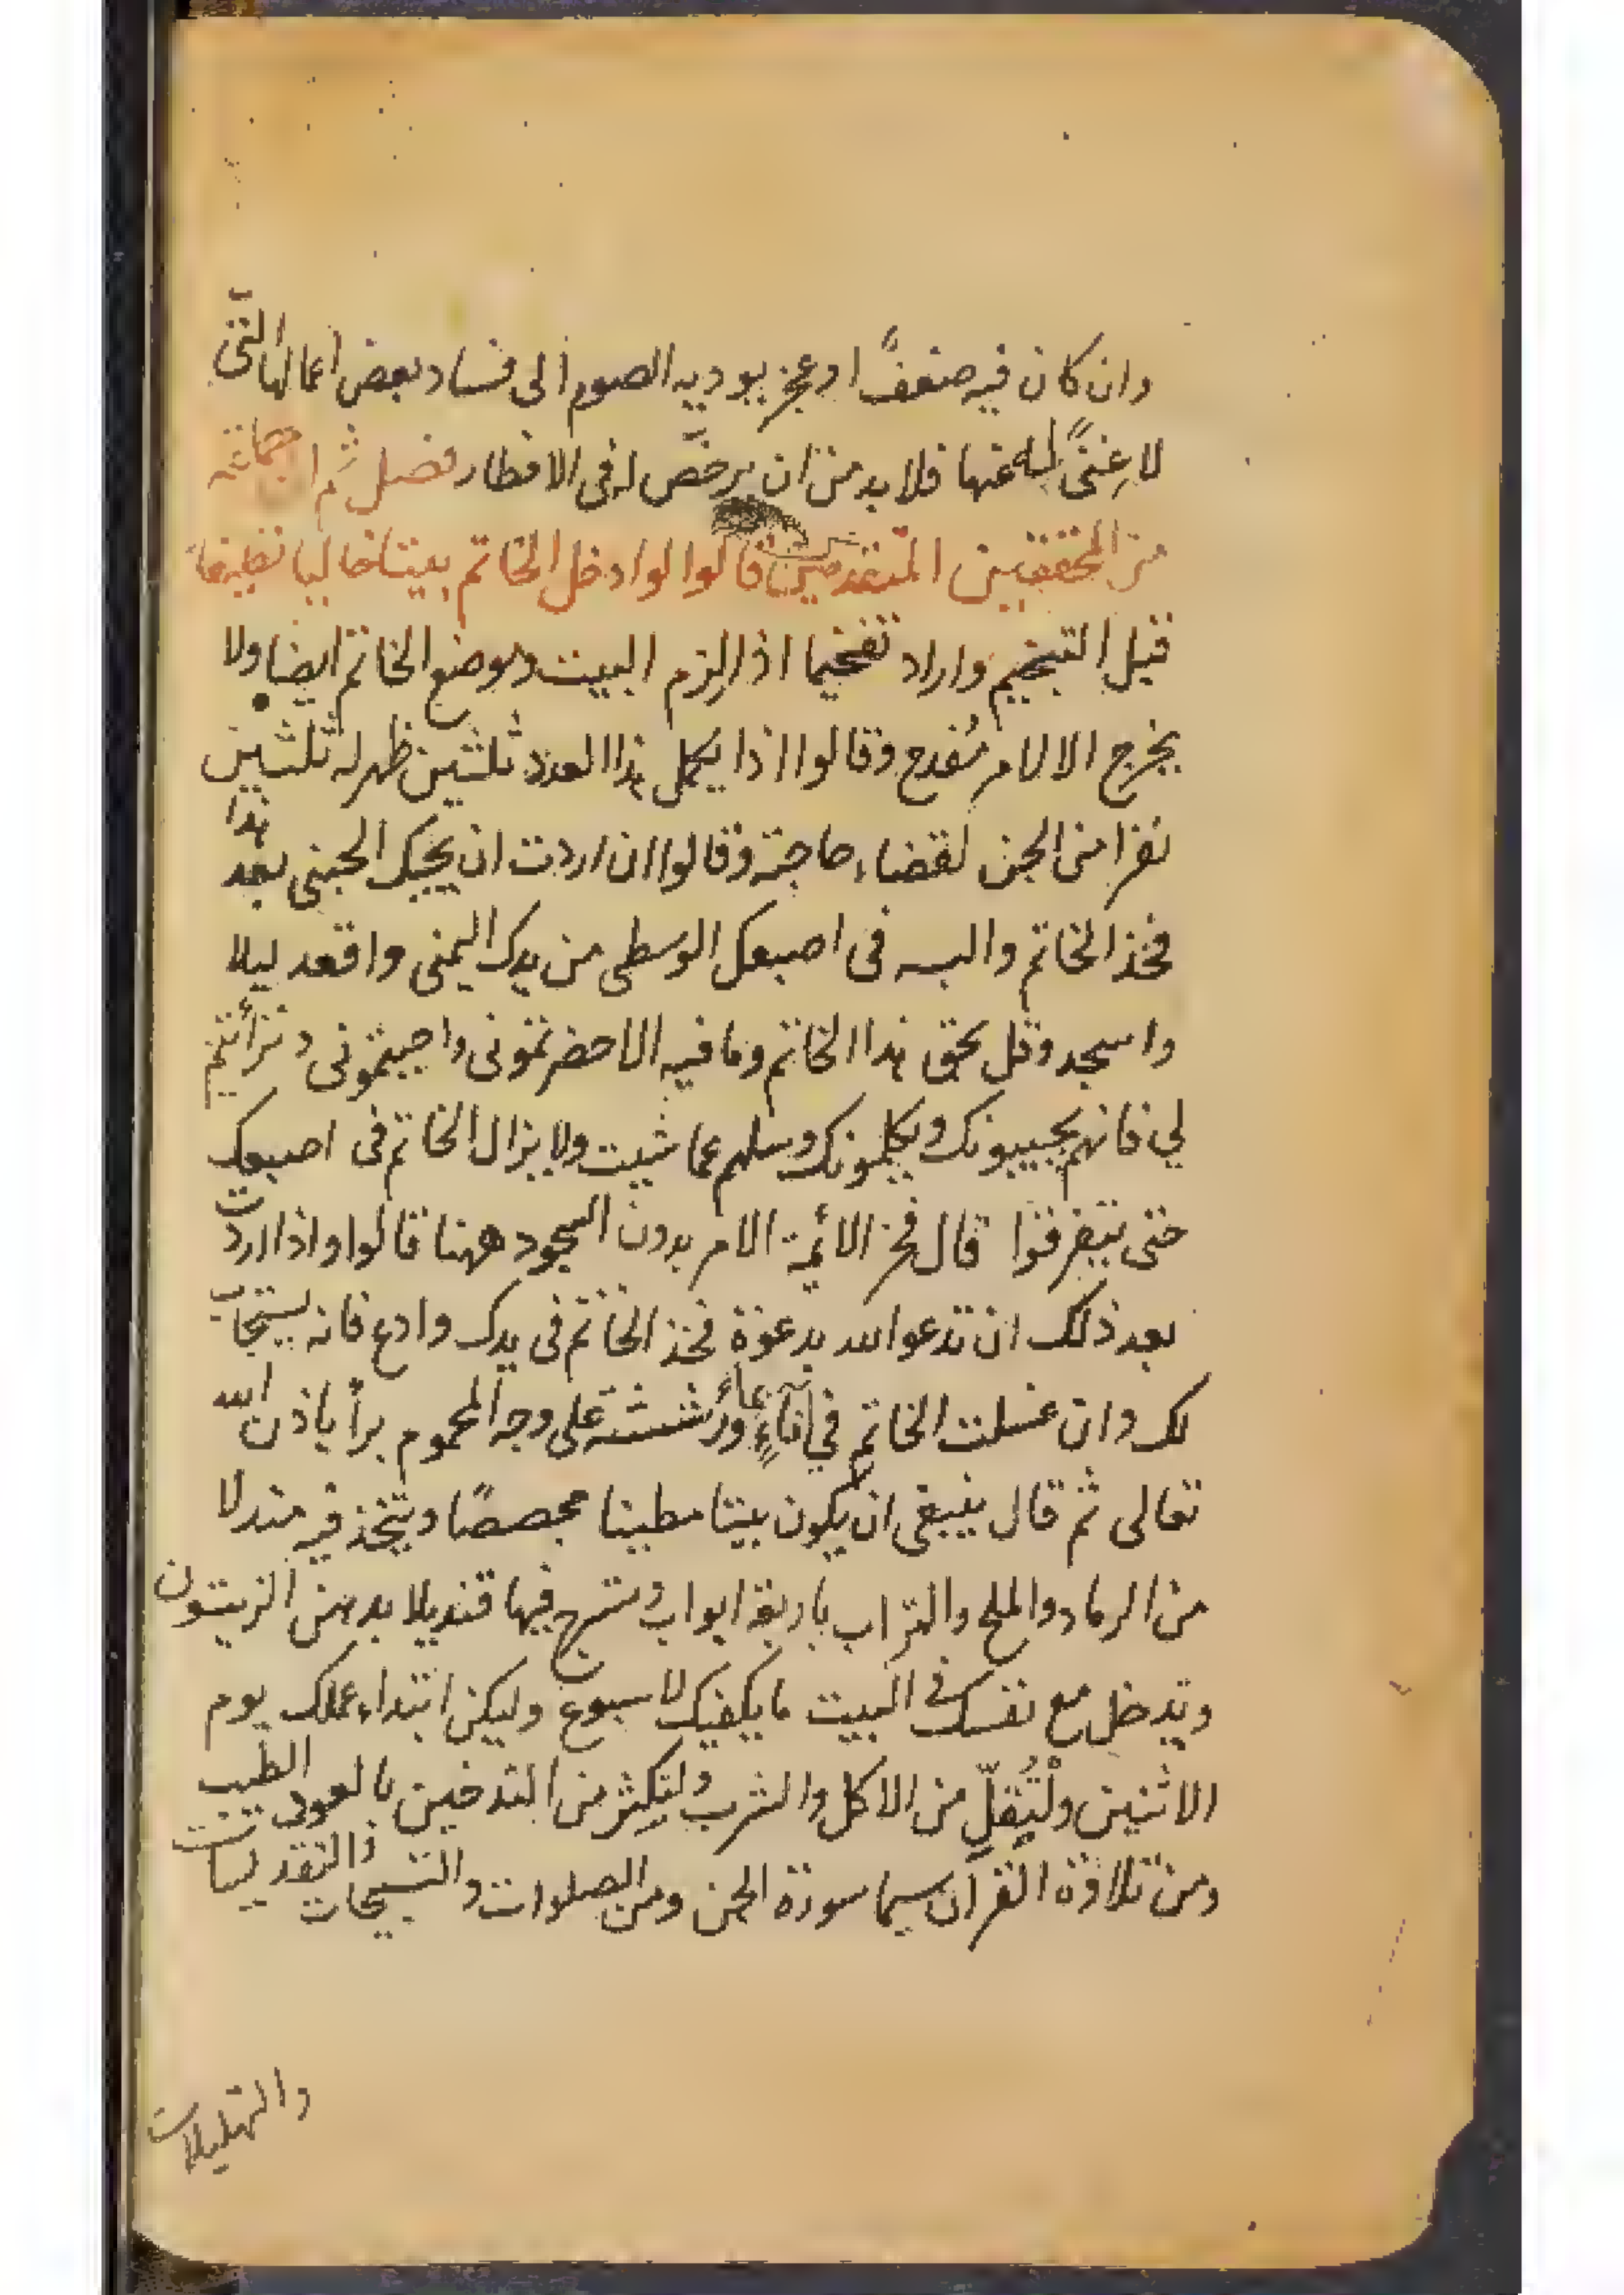 وان كان فيه ضعفًا او عجز يوديه الصوم الى فساد بعض اعمالها التى
لا غِنىً له عنها فلا بد من ان يرخّص له فى الافطار فصل ثم ان جماعة
من المحققين المتقدمين قالوا لو ادخل الخاتم بيتا خاليا نظيفا
قبل التبخيم واراد تفخيما اذا لزم البيت وبوضع الخاتم ايضا ولا
يخرج الا لامر مُفدع وقالوا اذا يكمل هذا العدد ثلثين ظهر له ثلثين
نفرا من الجن لقضاء حاجته وقالوا ان اردت ان يجيبك الجنى بعد هذا
فخذ الخاتم والبسه فى اصبعك الوسطى من يدك اليمنى واقعد ليلا
واسجد وقل بحق هذا الخاتم وما فيه الا حضرتمونى واجبتمونى وترأيتم
لي فانهم يجيبونك ويكلمونك وسلهم عما شيت ولا يزال الخاتم فى اصبعك
حتى يتفرقوا قال فخر الائمة الامر بدون السجود ههنا قالوا واذا اردت
بعد ذلك ان تدعوا الله بدعوة فخذ الخاتم فى يدك وادع فانه يستجاب
لك وان غسلت الخاتم في اناءٍ بماء ورششته على وجه المحموم برأ باذن الله
تعالى ثم قال ينبغى ان يكون بيتا مطينا مجصصًا ويتخذ فيه مندلا
من الرماد والملح والتراب باربعة ابواب وتسرج فيها قنديلا بدهن الزيتون
وتدخل مع نفسك فى البيت ما يكفيك لاسبوع وليكن ابتداء عملك يوم
الاثنين ولْتُقلّ من الاكل والشرب ولتكثر من التدخين بالعود الطيب
ومن تلاوة القرآن سيما سورة الجن ومن الصلوات والتسبيحات والتقديسات
والتهليلات